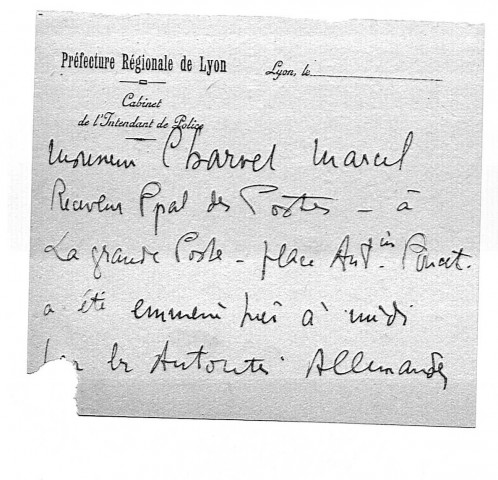 Préfecture Régionale de Lyon
Lyon, le
Cabinet
de l'Intendant de Police
Monsieur Charvet Marcel
Receveur Ppal des Postes - à
La grande Poste - place Ant.in Poncet.
a été emmené hier à midi
par les Autorités Allemandes